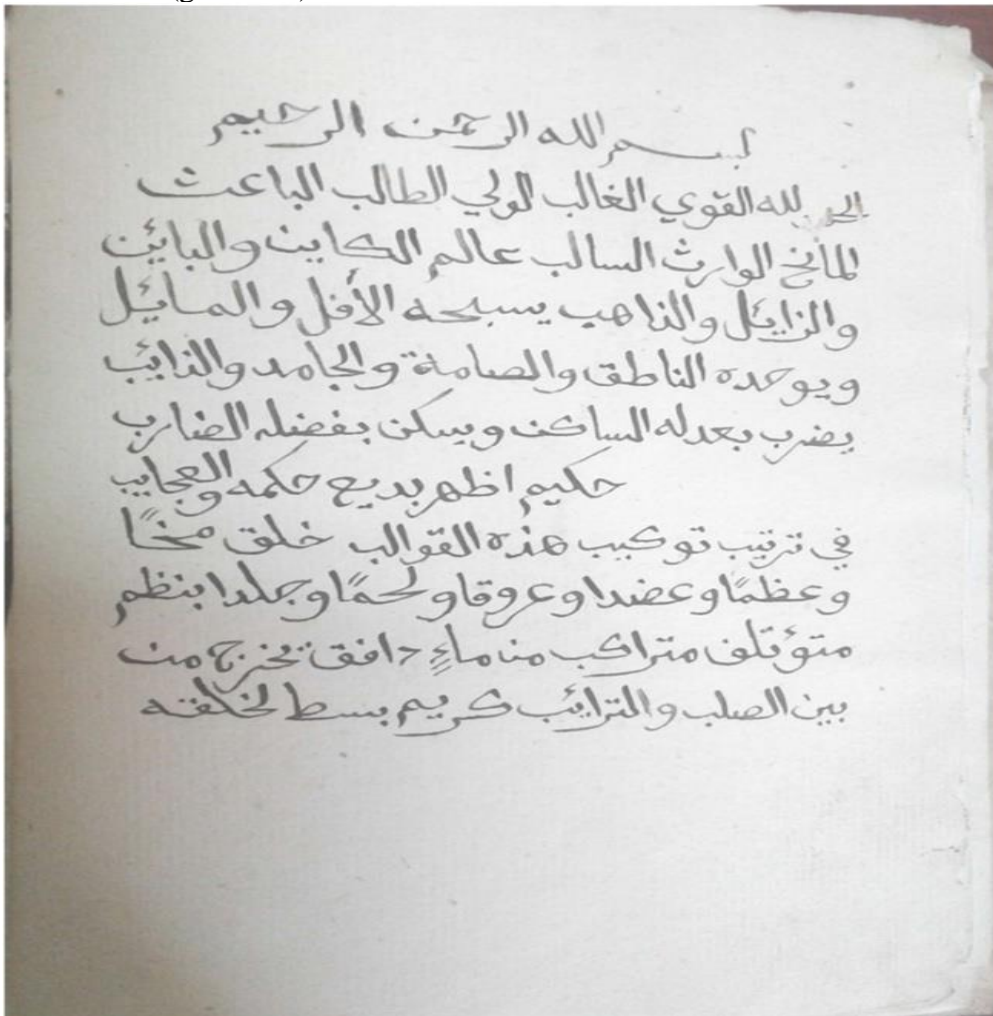 بسم الله الرحمن الرحيم
الحمد لله القوي الغالب الولي الطالب الباعث
المانح الوارث السالب عالم الكاين والبايئن
والزايئل والذاهب يسبحه الأفل والمايئل
ويوحده الناطق والصامة والجامد والذايئب
يضرب بعدله الساكن ويسكن بفضله الضارب
حكيم اظهر بديع حكمه والعجايب
في ترتيب توكيب هذه القوالب خلق مخًا
وعظمًا وعضدا وعروقا ولحمًا وجلدا بنظم
متؤتلف متراكب من ماءٍ دافق يخرج من
بين الصلب والترايئب كريم بسط لخلقه